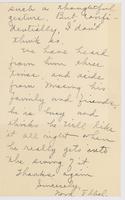 such a thoughtful
gesture. But confi-
dentially, I don't
think
We have heard
from him three
times, and aside
from missing his
family and friends,
he is busy and
thinks he will like
it all right – when
he really gets into
the swing of it.
Thanks again
Sincerely,